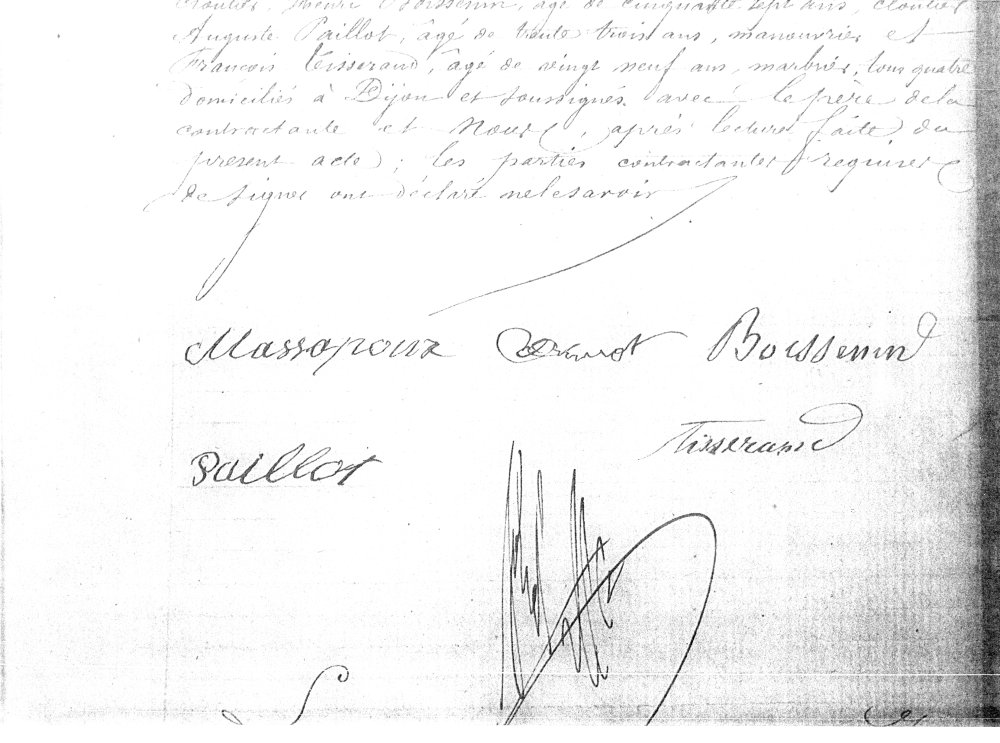 cloutier, Henri Boissenin, âgé de cinquante sept ans, cloutier
Auguste Paillot, âgé de trente trois ans, manouvrier et
François Tisserand, âgé de vingt neuf ans, marbrier, tous quatre
domiciliés à Dijon et soussignés avec le père de la
contractante et Nous, après lecture faite du
présent acte; les parties contractantes requises
de signer ont déclaré ne le savoir
Massopoux Boissenin
Tisserand
Paillot